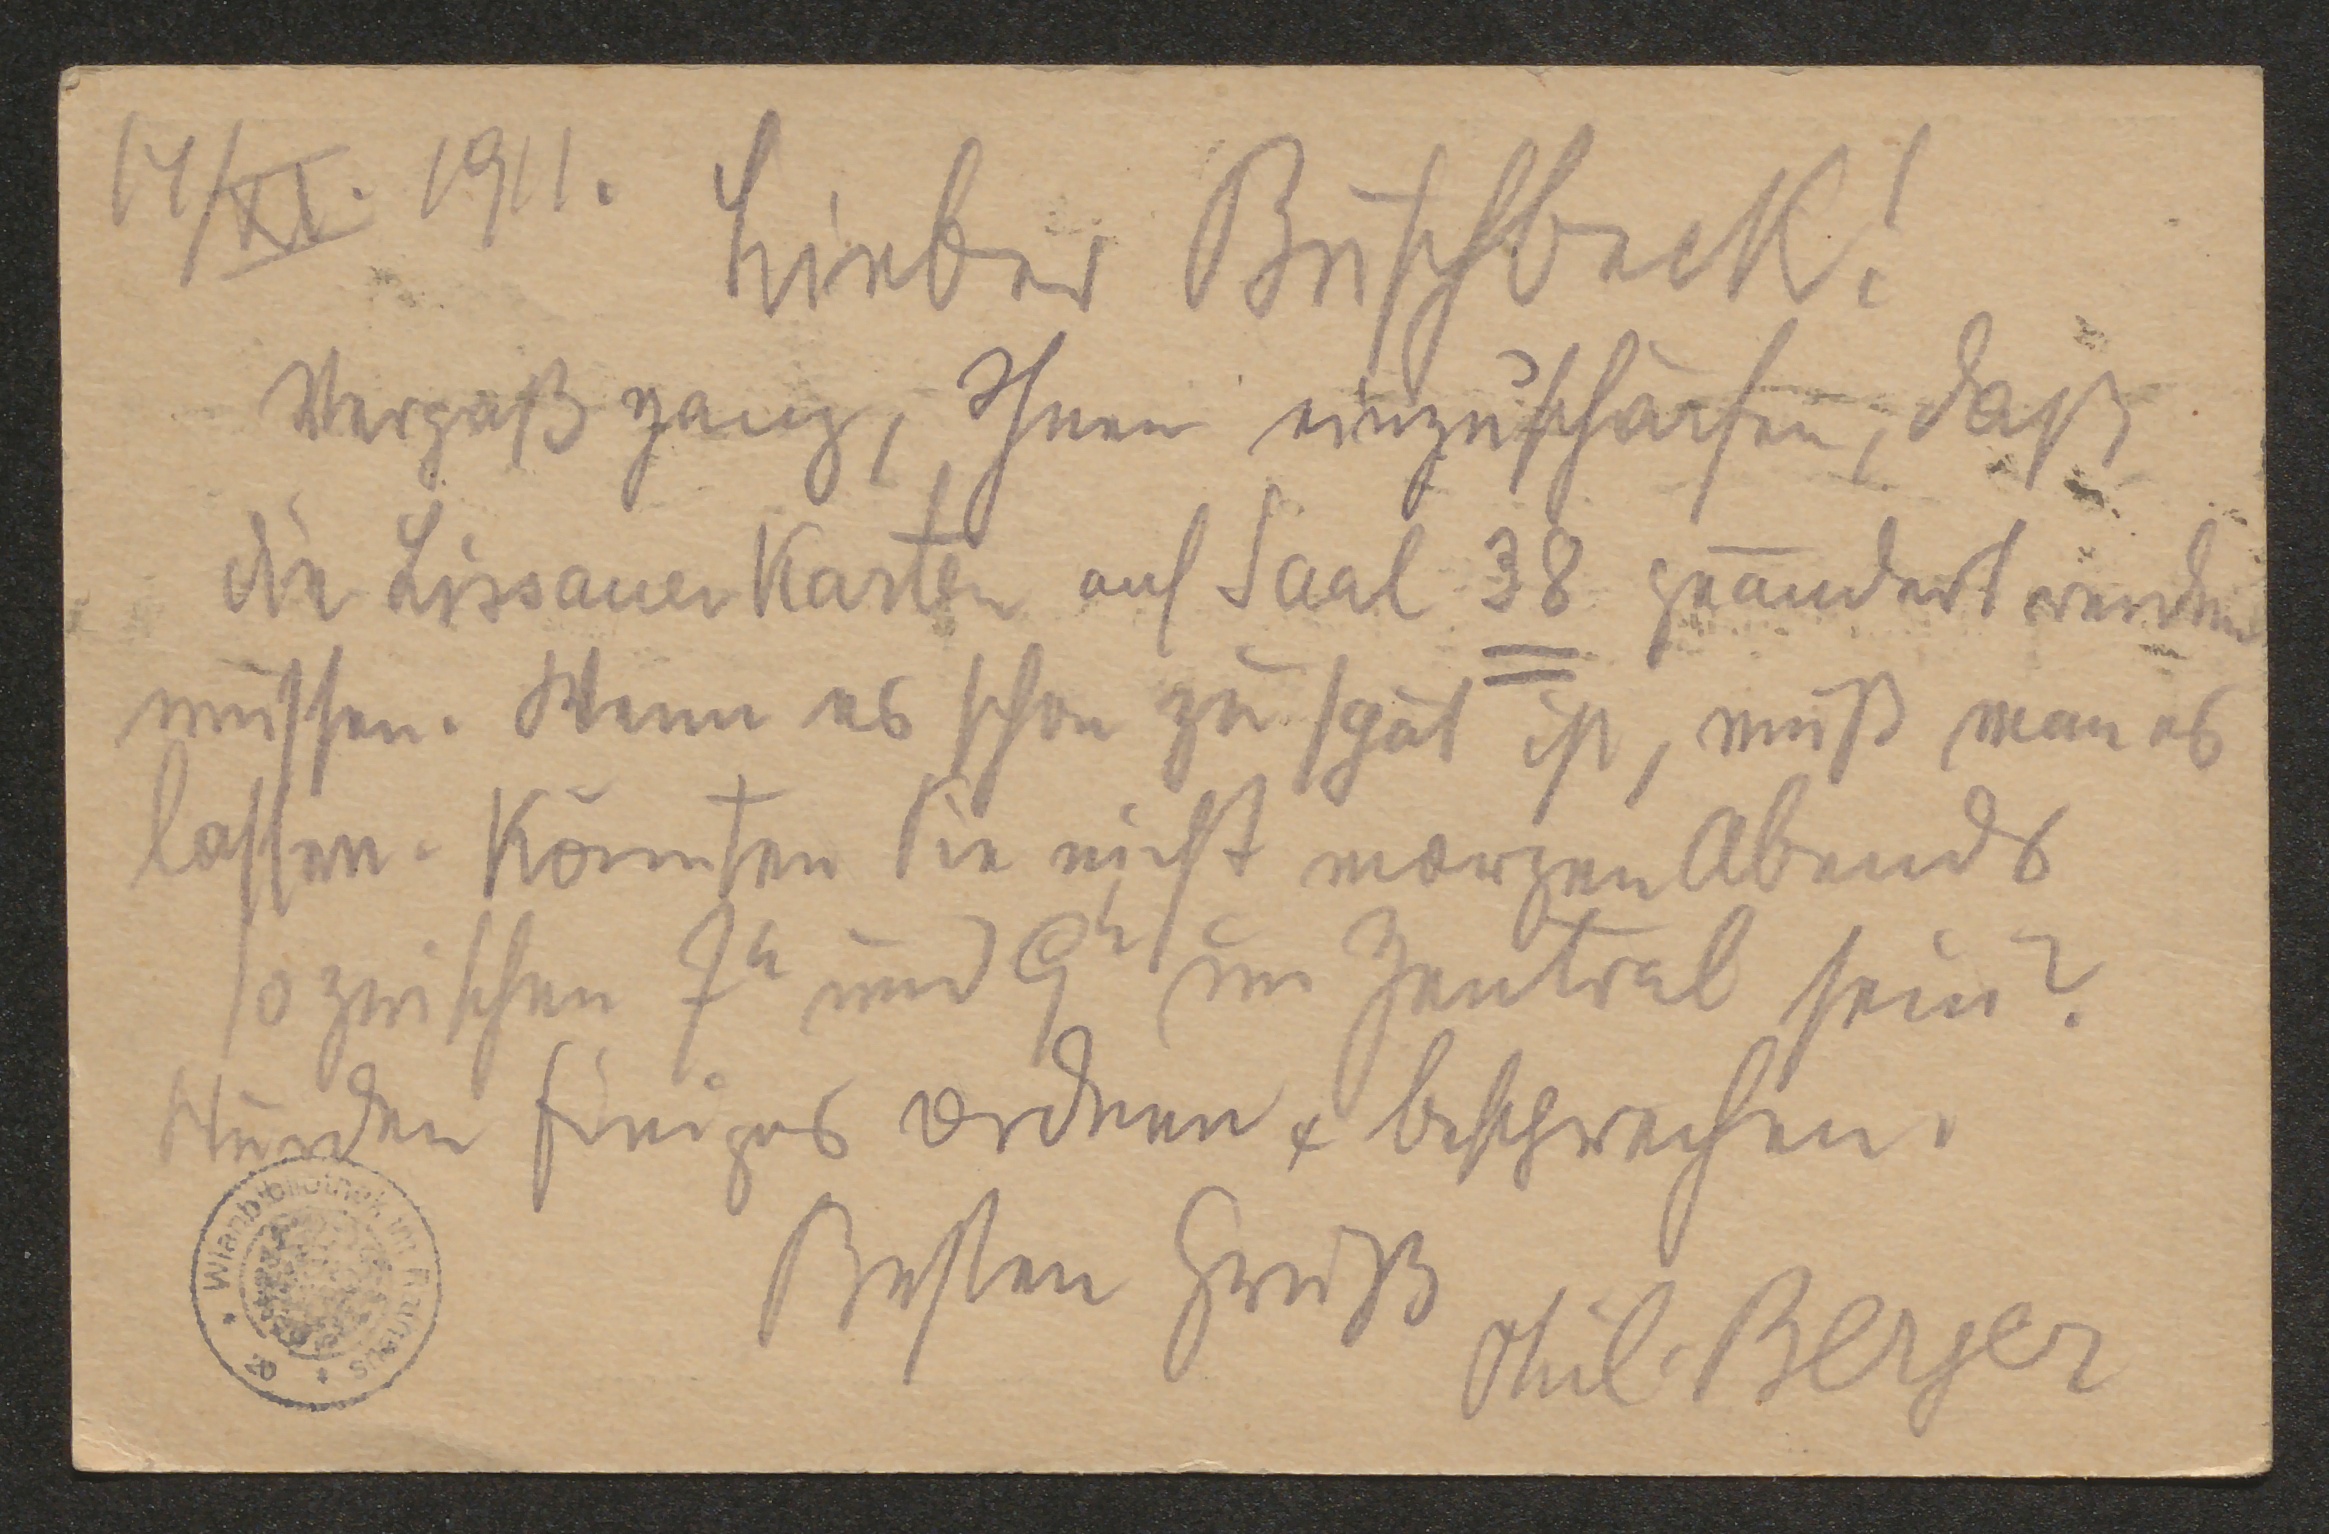 14/XI. 1911. Lieber Buschbeck!
Vergaß ganz, Ihnen einzuschärfen, daß
die Lissauer Karten auf Saal 38 geändert werden
müssen. Wenn es schon zu spät ist, muß man es
lassen. Könnten Sie nicht morgen Abends
so zwischen 7h und 9h im Zentral sein?
Würden Einiges ordnen & besprechen.
Besten Gruß
Phil. Berger
Wienbibliothek im Rathaus